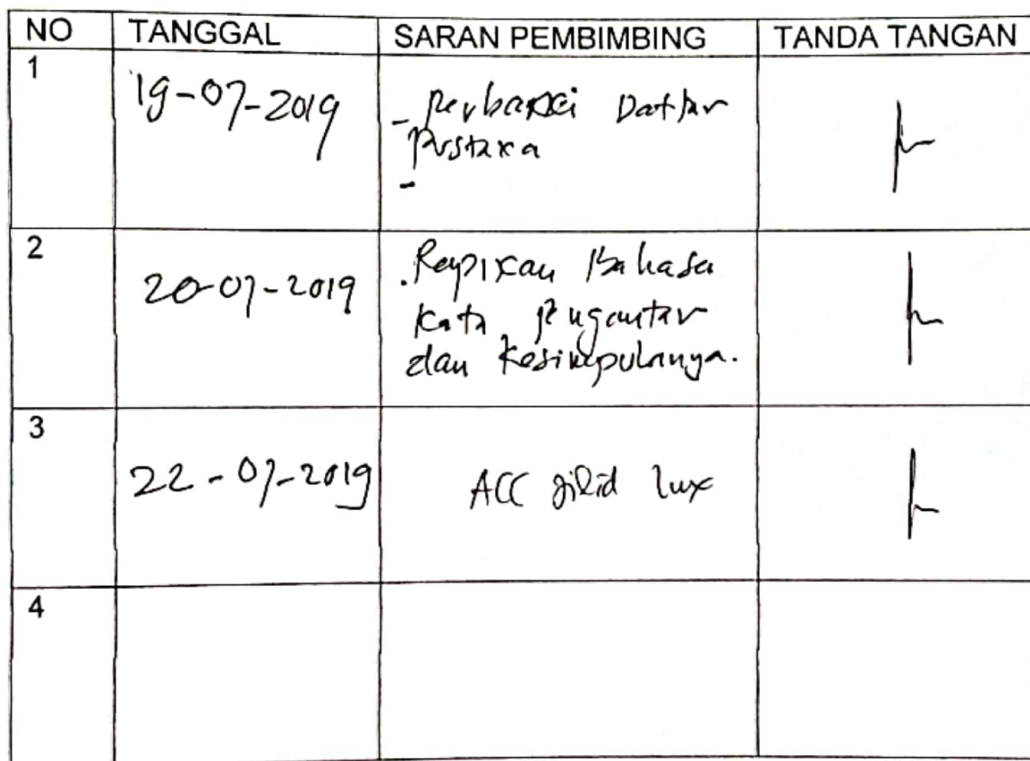 NO TANGGAL SARAN PEMBIMBING TANDA TANGAN
1
19-07-2019
- Perbaiki Daftar
Pustaka
-
2
20-07-2019
. Rapikan Bahasa
Kata Pengantar
dan Kesimpulanya.
3
22-07-2019
ACC jilid lux
4